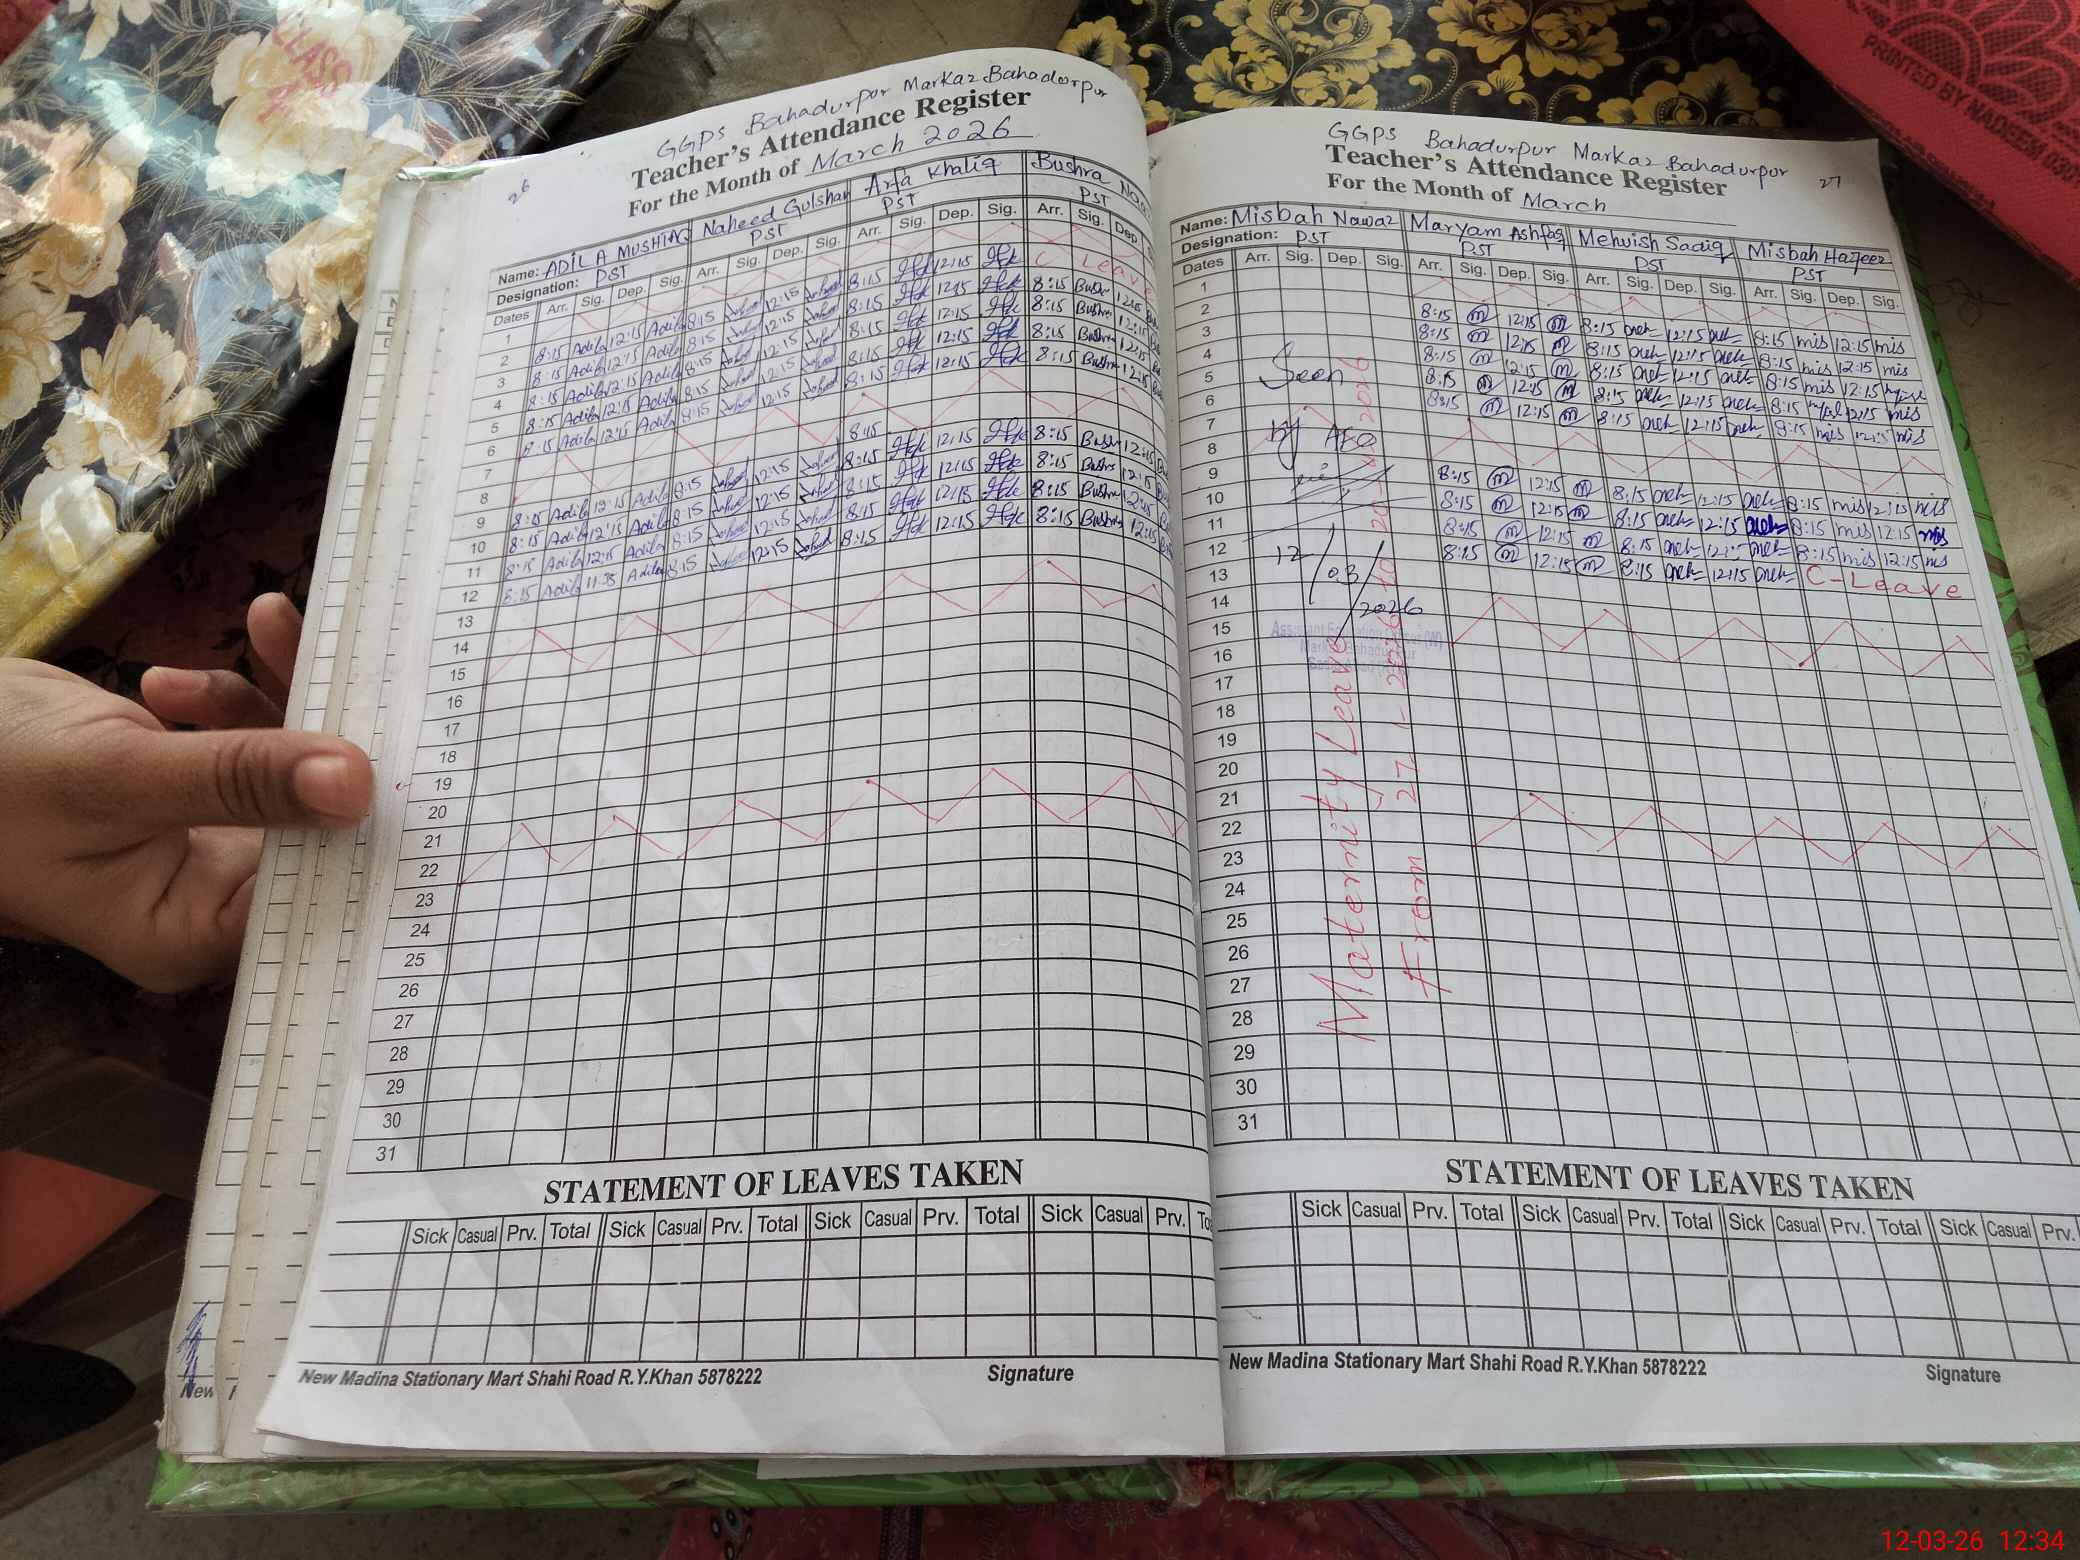 CLASS
PRINTED BY NADEEM 030
26
GGPS Bahadurpur Markaz Bahadurpur
Teacher's Attendance Register
For the Month of March 2026
Name: ADILA MUSHTAQ Naheed Gulshan Arfa Khaliq Bushra
Designation: PST PST PST PST
Dates Arr. Sig. Dep. Sig. Arr. Sig. Dep. Sig. Arr. Sig. Dep. Sig. Arr. Sig. Dep.
1
2 8:15 Adila 12:15 Adila 8:15 12:15 8:15 12:15 C Leave
3 8:15 Adila 12:15 Adila 8:15 12:15 8:15 12:15 8:15 Bushra 12:15
4 8:15 Adila 12:15 Adila 8:15 12:15 8:15 12:15 8:15 Bushra 12:15
5 8:15 Adila 12:15 Adila 8:15 12:15 8:15 12:15 8:15 Bushra 12:15
6 8:15 Adila 12:15 Adila 8:15 12:15 8:15 12:15 8:15 Bushra 12:15
7
8
9 8:15 Adila 12:15 Adila 8:15 12:15 8:15 12:15 8:15 Bushra 12:15
10 8:15 Adila 12:15 Adila 8:15 12:15 8:15 12:15 8:15 Bushra 12:15
11 8:15 Adila 12:15 Adila 8:15 12:15 8:15 12:15 8:15 Bushra 12:15
12 8:15 Adila Adila 8:15 12:15 8:15 12:15 8:15 Bushra 12:15
13
14
15
16
17
18
19
20
21
22
23
24
25
26
27
28
29
30
31
STATEMENT OF LEAVES TAKEN
Sick Casual Prv. Total Sick Casual Prv. Total Sick Casual Prv. Total Sick Casual Prv.
New Madina Stationary Mart Shahi Road R.Y.Khan 5878222 Signature
New
27
GGPS Bahadurpur Markaz Bahadurpur
Teacher's Attendance Register
For the Month of March
Name: Misbah Nawaz Maryam Ashfaq Mehwish Sadiq Misbah Hafeez
Designation: PST PST PST PST
Dates Arr. Sig. Dep. Sig. Arr. Sig. Dep. Sig. Arr. Sig. Dep. Sig. Arr. Sig. Dep. Sig.
1
2 8:15 m 12:15 m 8:15 12:15 8:15 mis 12:15 mis
3 8:15 m 12:15 m 8:15 12:15 8:15 mis 12:15 mis
4 8:15 m 12:15 m 8:15 12:15 8:15 mis 12:15
5 8:15 m 12:15 m 8:15 12:15 8:15 12:15 mis
6 8:15 m 12:15 m 8:15 12:15 8:15 mis 12:15 mis
7
8
9 8:15 m 12:15 m 8:15 12:15 8:15 mis 12:15 mis
10 8:15 m 12:15 m 8:15 12:15 8:15 mis 12:15 mis
11 8:15 m 12:15 m 8:15 12:15 8:15 mis 12:15 mis
12 8:15 m 12:15 m 8:15 12:15 C-Leave
13
14
15
16
17
18
19
20
21
22
23
24
25
26
27
28
29
30
31
Seen
by AEO
12/03/2026
Assistant Education Officer (W)
Markaz Bahadurpur
Maternity Leave
From 27-1-2026 to 2026
STATEMENT OF LEAVES TAKEN
Sick Casual Prv. Total Sick Casual Prv. Total Sick Casual Prv. Total Sick Casual Prv.
New Madina Stationary Mart Shahi Road R.Y.Khan 5878222 Signature
12-03-26 12:34